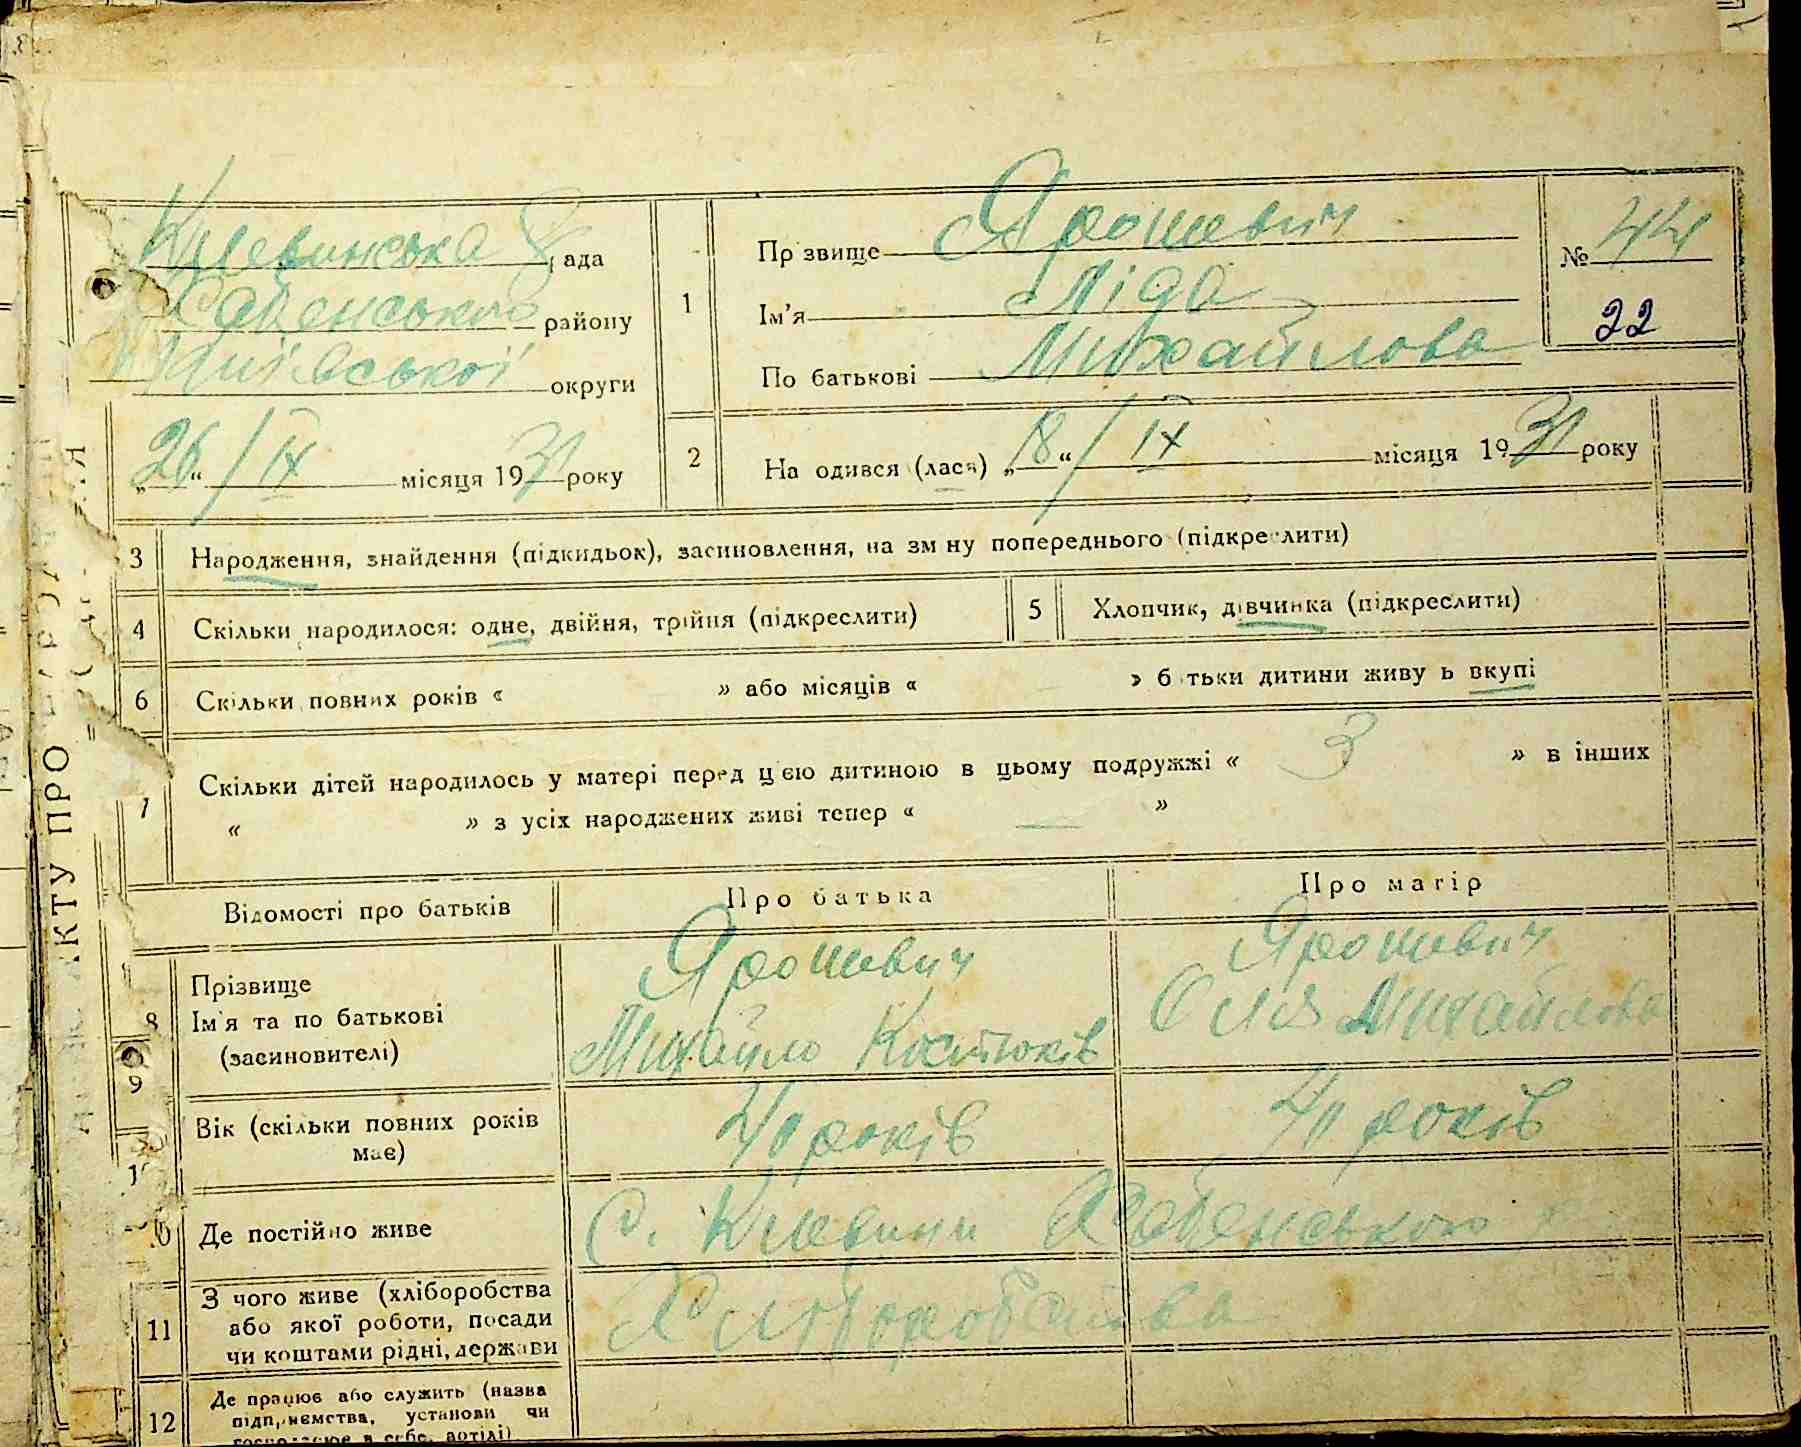 Клевинська рада
Хабенського району
Київської округи
„26“ / ІХ місяця 1931 року
1
Пр звище Ярошевич
Ім'я Ліда
По батькові Михайлова
№ 44
22
2
На одився (лася) „18“ / ІХ місяця 1931 року
3 Народження, знайдення (підкидьок), засиновлення, на зм ну попереднього (підкреслити)
4 Скільки народилося: одне, двійня, трійня (підкреслити)
5 Хлопчик, дівчинка (підкреслити)
6 Скільки повних років « » або місяців « » б тьки дитини живу ь вкупі
7 Скільки дітей народилось у матері перед цією дитиною в цьому подружжі « 3 » в інших
« » з усіх народжених живі тепер « — »
КТУ ПРО
Відомості про батьків Про батька Про матір
8 Прізвище
Ім'я та по батькові
(засиновителі)
Ярошевич
Михайло Костюків
Ярошевич
Оля Михайлова
9 Вік (скільки повних років
має)
40 років
40 років
Де постійно живе
С. Клевини Хабенського
11 З чого живе (хліборобства
або якої роботи, посади
чи коштами рідні, держави
Хліборобства
12 Де працює або служить (назва
підприємства, установи чи